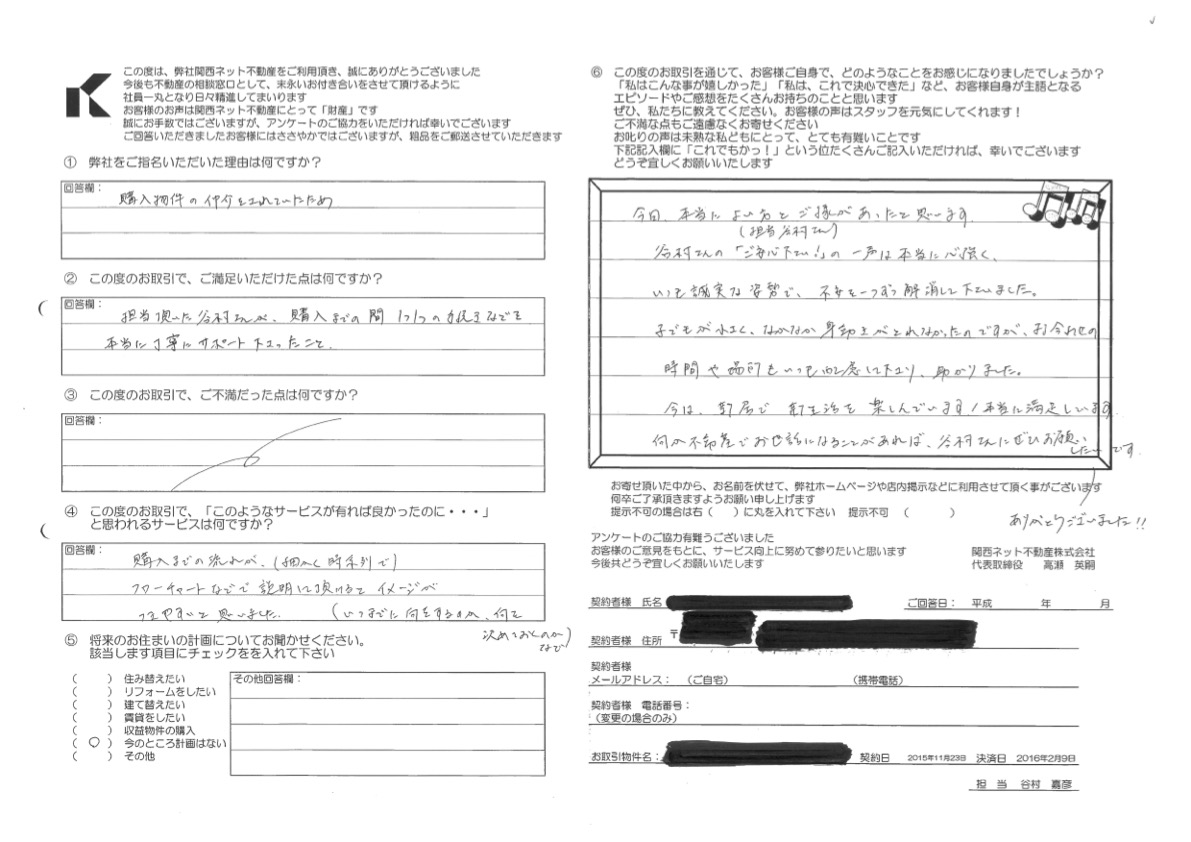 この度は、弊社関西ネット不動産をご利用頂き、誠にありがとうございました
今後も不動産の相談窓口として、末永いお付き合いをさせて頂けるように
社員一丸となり日々精進してまいります
お客様のお声は関西ネット不動産にとって「財産」です
誠にお手数ではございますが、アンケートのご協力をいただければ幸いでございます
ご回答いただきましたお客様にはささやかではございますが、粗品をご郵送させていただきます
① 弊社をご指名いただいた理由は何ですか？
回答欄：
購入物件の仲介をされていたため
② この度のお取引で、ご満足いただけた点は何ですか？
回答欄：
担当頂いた谷村さんが、購入までの間 1つ1つの手続きなどを
本当に丁寧にサポート下さったこと。
③ この度のお取引で、ご不満だった点は何ですか？
回答欄：
④ この度のお取引で、「このようなサービスが有れば良かったのに・・・」
と思われるサービスは何ですか？
回答欄：
購入までの流れが、(細かく時系列で)
フローチャートなどで説明して頂けると イメージが
つきやすいと思いました。 (いつまでに何をするのか、何を
決めておくのか
など)
⑤ 将来のお住まいの計画についてお聞かせください。
該当します項目にチェックをを入れて下さい
( ) 住み替えたい
( ) リフォームをしたい
( ) 建て替えたい
( ) 賃貸をしたい
( ) 収益物件の購入
( ○ ) 今のところ計画はない
( ) その他
その他回答欄：
⑥ この度のお取引を通じて、お客様ご自身で、どのようなことをお感じになりましたでしょうか？
「私はこんな事が嬉しかった」「私は、これで決心できた」など、お客様自身が主語となる
エピソードやご感想をたくさんお持ちのことと思います
ぜひ、私たちに教えてください。お客様の声はスタッフを元気にしてくれます！
ご不満な点もご遠慮なくお寄せください
お叱りの声は未熟な私どもにとって、とても有難いことです
下記記入欄に「これでもかっ！」という位たくさんご記入いただければ、幸いでございます
どうぞ宜しくお願いいたします
今回、本当に よい方とご縁があったと思います。
(担当谷村さん)
谷村さんの「ご安心下さい！」の一声は本当に心強く、
いつも誠実な姿勢で、不安を一つずつ解消して下さいました。
子どもが小さく、なかなか身動きがとれなかったのですが、お会わせの
時間や場所もいつも配慮して下さり、助かりました。
今は、新居で新生活を楽しんでいます！本当に満足しています
何か不動産でお世話になることがあれば、谷村さんにぜひお願い
したいです。
ありがとうございました!!
お寄せ頂いた中から、お名前を伏せて、弊社ホームページや店内掲示などに利用させて頂く事がございます
何卒ご了承頂きますようお願い申し上げます
提示不可の場合は右（ ）に丸を入れて下さい 提示不可 （ ）
アンケートのご協力有難うございました
お客様のご意見をもとに、サービス向上に努めて参りたいと思います
今後共どうぞ宜しくお願いいたします
関西ネット不動産株式会社
代表取締役 高瀬 英嗣
契約者様 氏名
ご回答日： 平成 年 月
契約者様 住所 〒
契約者様
メールアドレス： （ご自宅） （携帯電話）
契約者様 電話番号：
（変更の場合のみ）
お取引物件名： 契約日 2015年11月23日 決済日 2016年2月9日
担 当 谷村 嘉彦